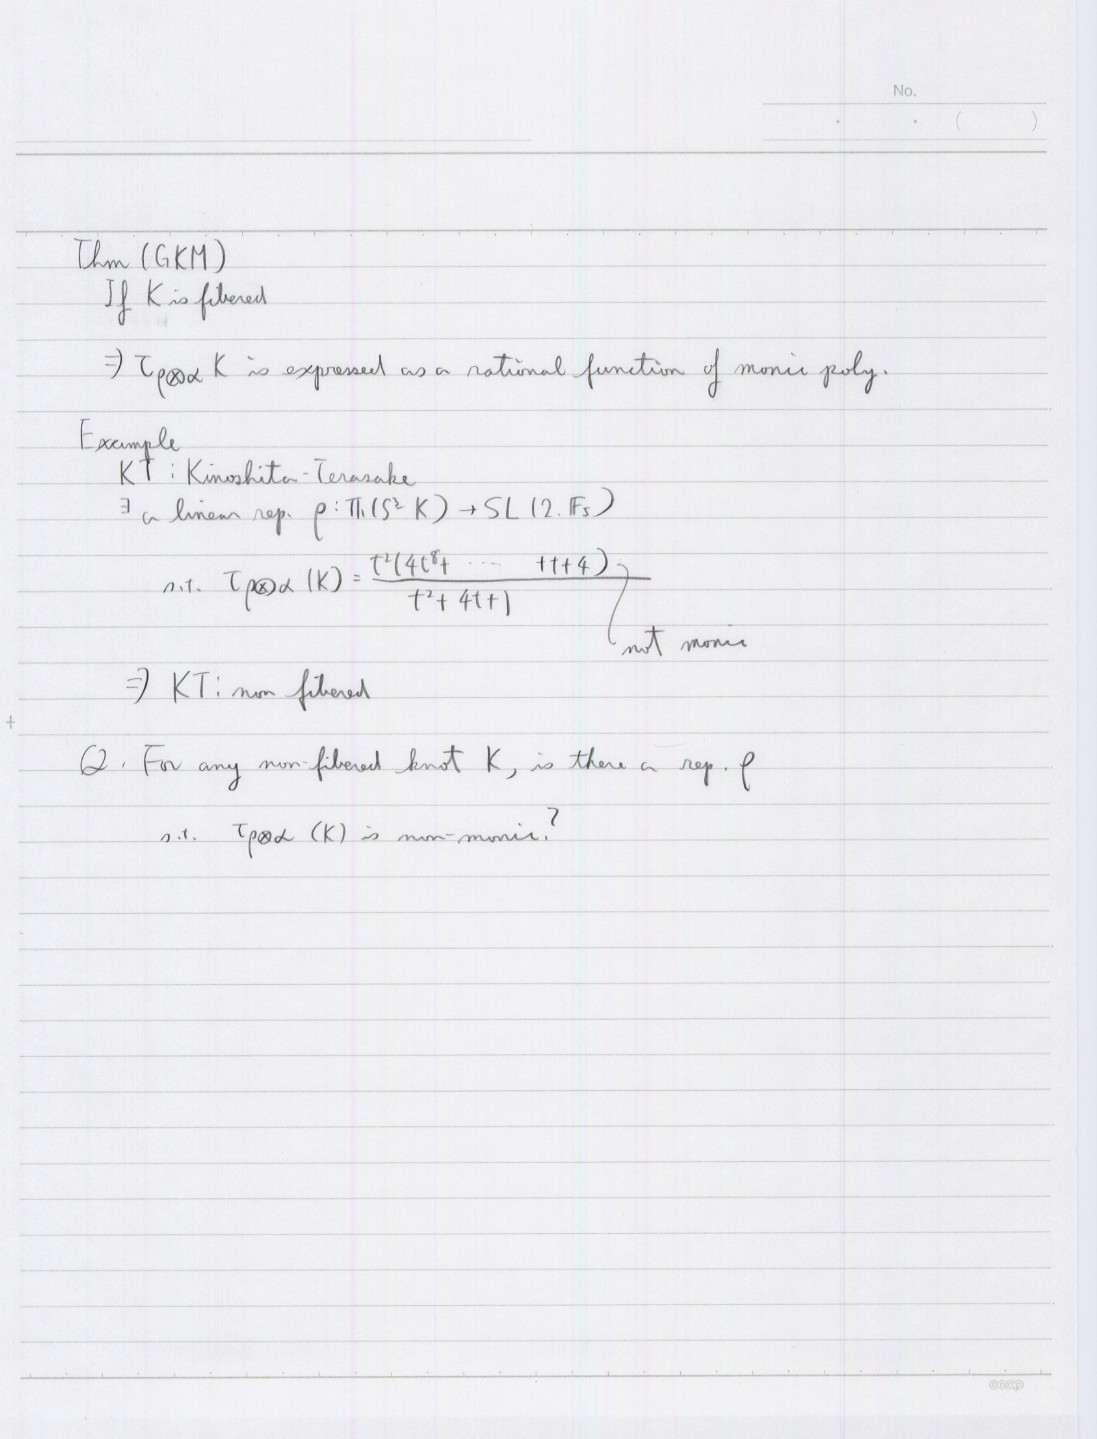 No.
. . ( )
Thm (GKM)
If K is fibered
⇒ τρ⊗α K is expressed as a rational function of monic poly.
Example
KT : Kinoshita-Terasaka
∃ a linear rep. ρ : π₁(S² K) → SL(2. F₅)
s.t. τρ⊗α (K) = t²(4t⁸+ ... +t+4) / t²+4t+1
not monic
⇒ KT : non fibered
Q. For any non-fibered knot K, is there a rep. ρ
s.t. τρ⊗α (K) is non-monic.?